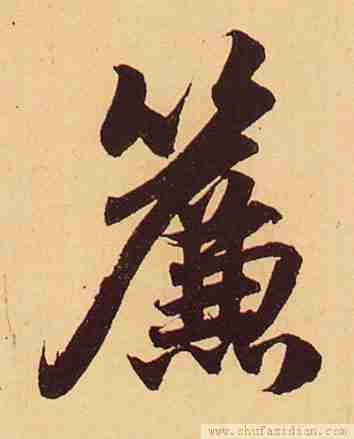 簾
www.shufazidian.com